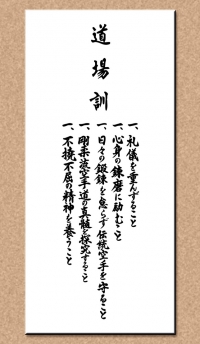 道場訓
一、礼儀を重んずること
一、心身の錬磨に励むこと
一、日々の鍛錬を怠らず伝統空手を守ること
一、剛柔流空手道の真髄を探究すること
一、不撓不屈の精神を養うこと